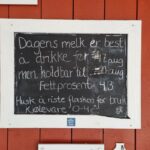 Dagens melk er best
å drikke før 7 aug
men holdbar til aug
Fettprosent 4,3
Husk å riste flasken før bruk
Kjølevare 0-4°